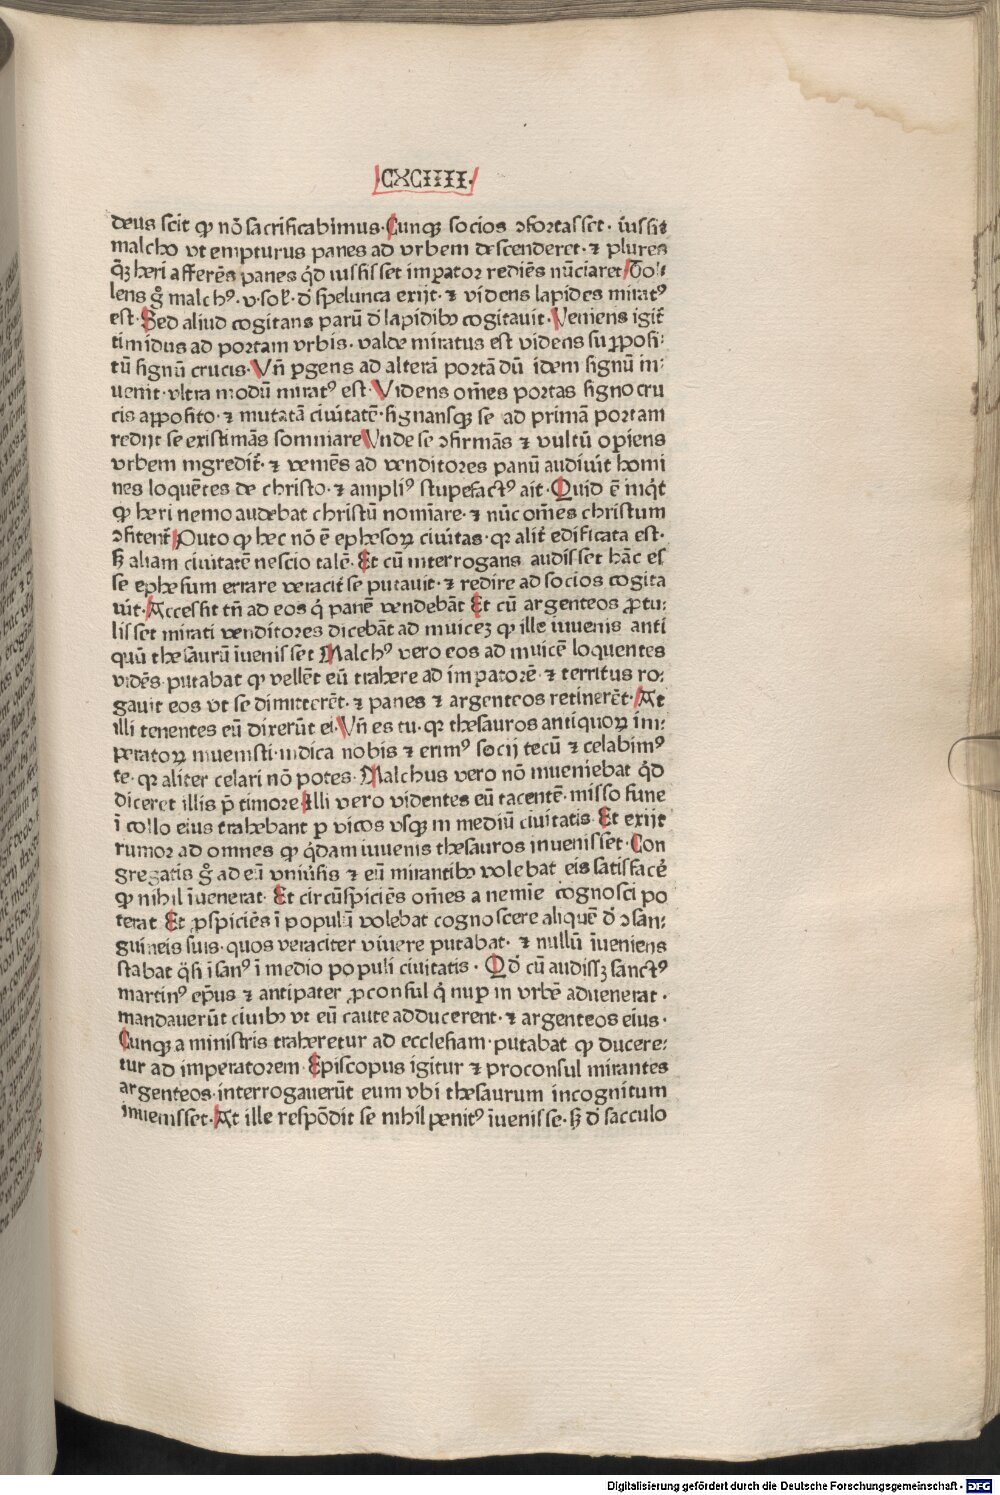 ·CXCIIII·
deus scit ꝙ nō sacrificabimus· Cunqꝫ socios ɔfortasset · iussit
malcho vt empturus panes ad vrbem descenderet· ⁊ plures
q̄ꝫ heri afferēs panes q̇d iussisset imꝑator rediēs nūciaret Tol⸗
lens g̊ malchꝰ· v· sol̕· d̄ spelunca exijt· ⁊ videns lapides miratꝰ
est· Sed aliud cogitans parū d̄ lapidibꝰ cogitauit· Veniens igit̄
timidus ad portam vrbis· valde miratus est videns suꝑposi⸗
tū signū crucis· Vn̄ ꝑgens ad alterā portā dū idem signū in⸗
uenit· vltra modū miratꝰ est· Videns om̄es portas signo cru
cis apposito· ⁊ mutatā ciuitatē· signansqꝫ se ad primā portam
redijt se existimās somniare Vnde se ɔfirmās ⁊ vultū oꝑiens
vrbem ingredit̄· ⁊ veniēs ad venditores panū audiuit homi
nes loquētes de christo· ⁊ ampliꝰ stupefactꝰ ait· Quid ē inq̇t
ꝙ heri nemo audebat christū nomīare· ⁊ nūc om̄es christum
ɔfitent̄ Puto ꝙ hec nō ē ephesoꝝ ciuitas· qꝛ alit̄ edificata est·
sꝫ aliam ciuitatē nescio talē· Et cū interrogans audisset hāc es
se ephesum errare veracit̄ se putauit· ⁊ redire ad socios cogita
uit· Accessit tn̄ ad eos q̇ panē vendebāt Et cū argenteos ꝓtu⸗
lisset mirati venditores dicebāt ad inuiceꝫ ꝙ ille iuuenis anti
quū thesaurū īuenisset Malchꝰ vero eos ad inuicē loquentes
vidēs· putabat ꝙ vellēt eū trahere ad imꝑatorē· ⁊ territus ro⸗
gauit eos vt se dimitterēt· ⁊ panes ⁊ argenteos retinerēt· At
illi tenentes eū dixerūt ei· Vn̄ es tu· qꝛ thesauros antiquoꝝ im⸗
peratoꝝ inuenisti· indica nobis ⁊ erimꝰ socij tecū ⁊ celabimꝰ
te· qꝛ aliter celari nō potes· Malchus vero nō inueniebat q̇d
diceret illis p̄ timore Illi vero videntes eū tacentē· misso fune
ī collo eius trahebant ꝑ vicos vsqꝫ in mediū ciuitatis· Et exijt
rumor ad omnes ꝙ q̇dam iuuenis thesauros inuenisset· Con
gregatis g̊ ad eū vniūsis ⁊ eū mirantibꝰ volebat eis satisfacē
ꝙ nihil īuenerat· Et circūspiciēs om̄es a nemīe cognosci po
terat Et ꝓspiciēs ī populū volebat cognoscere aliquē d̄ ɔsan⸗
guineis suis· quos veraciter viuere putabat· ⁊ nullū īueniens
stabat q̄si īsanꝰ ī medio populi ciuitatis · Qd̄ cū audissꝫ sanctꝰ
martinꝰ ep̄us ⁊ antipater ꝓconsul q̇ nuꝑ in vrbē aduenerat ·
mandauerūt ciuibꝰ vt eū caute adducerent· ⁊ argenteos eius·
Cunqꝫ a ministris traheretur ad ecclesiam· putabat ꝙ ducere⸗
tur ad imperatorem· Episcopus igitur ⁊ proconsul mirantes
argenteos· interrogauerūt eum vbi thesaurum incognitum
inuenisset· At ille respōdit se nihil penitꝰ īuenisse· sꝫ d̄ sacculo
Digitalisierung gefördert durch die Deutsche Forschungsgemeinschaft · DFG